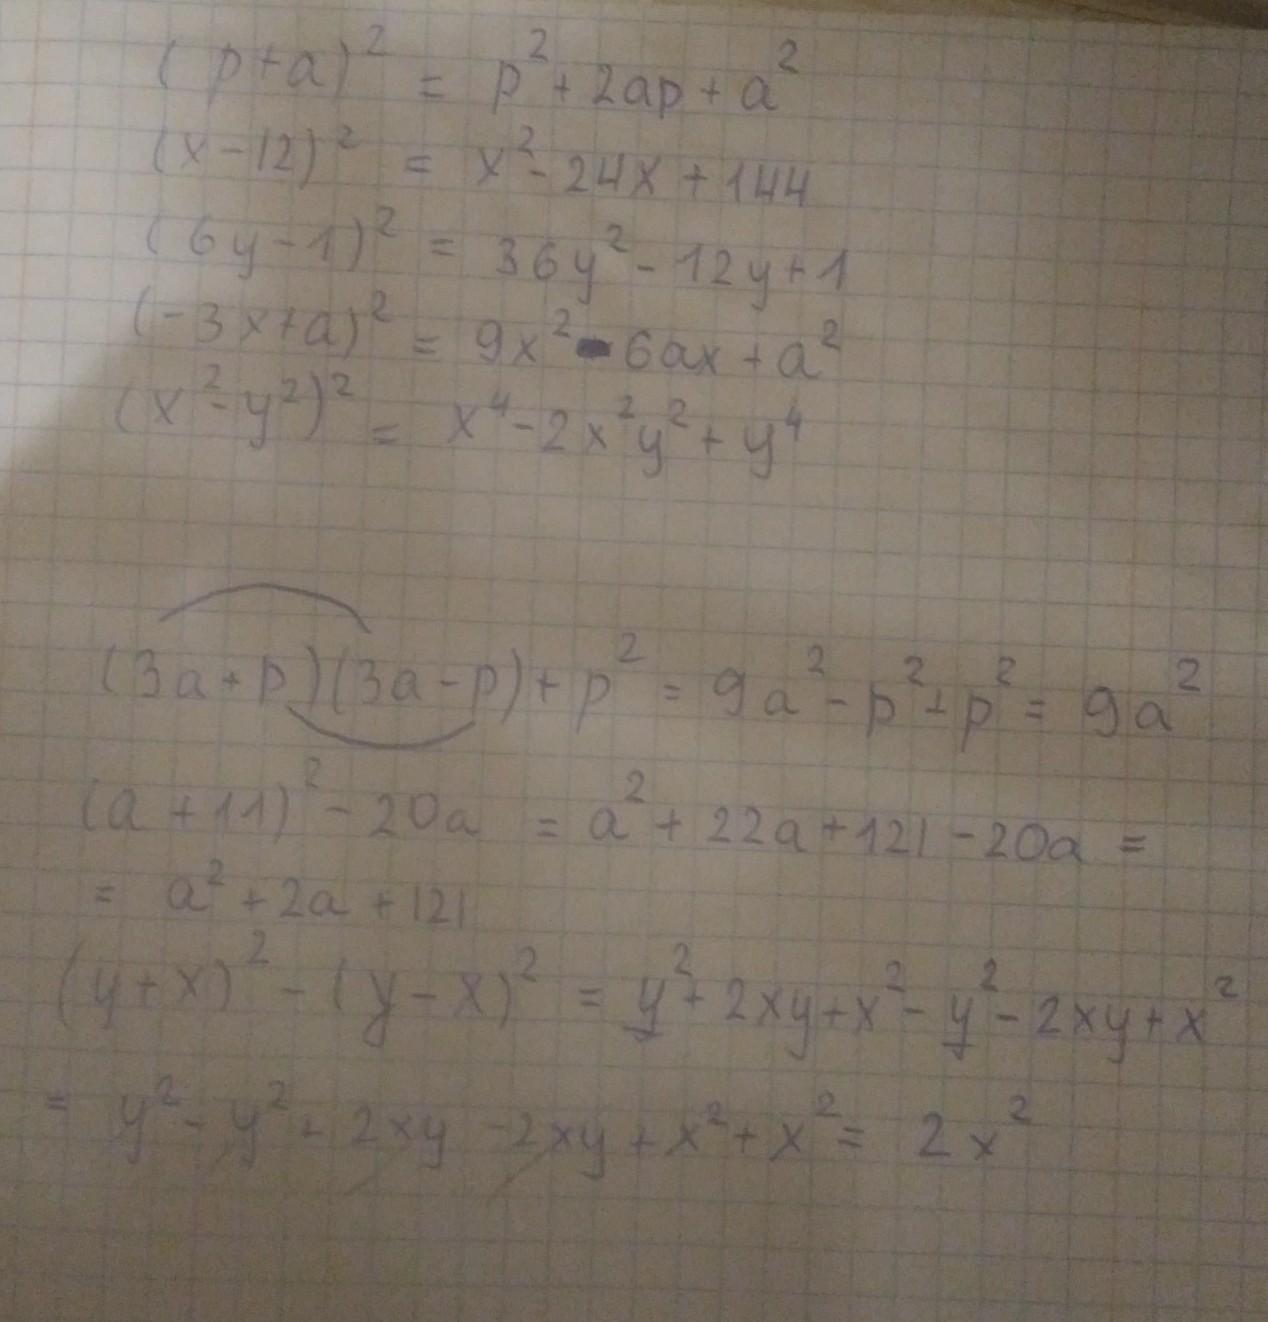 (p+a)² = p²+2ap+a²
(x-12)² = x²-24x+144
(6y-1)² = 36y²-12y+1
(-3x+a)² = 9x²-6ax+a²
(x²-y²)² = x⁴-2x²y²+y⁴
(3a+p)(3a-p)+p² = 9a²-p²+p² = 9a²
(a+11)²-20a = a²+22a+121-20a =
= a²+2a+121
(y+x)²-(y-x)² = y²+2xy+x²-y²-2xy+x²
= y²-y²+2xy-2xy+x²+x² = 2x²